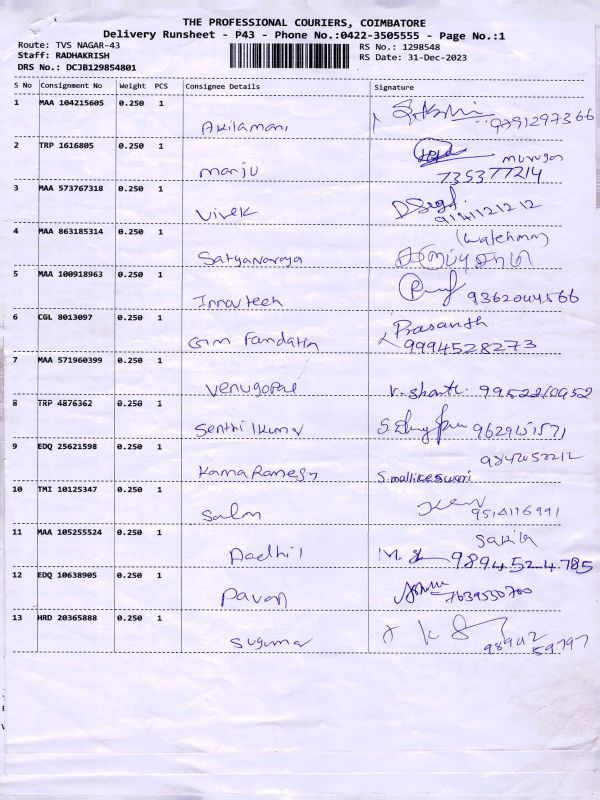 THE PROFESSIONAL COURIERS, COIMBATORE
Delivery Runsheet - P43 - Phone No.:0422-3505555 - Page No.:1
Route: TVS NAGAR-43 RS No.: 1298548
Staff: RADHAKRISH RS Date: 31-Dec-2023
DRS No.: DCJB129854801
S No Consignment No Weight PCS Consignee Details Signature
1 MAA 104215605 0.250 1 Akilamani 9791297366
2 TRP 1616805 0.250 1 manju murugan
735377214
3 MAA 573767318 0.250 1 Vivek
9141121212
4 MAA 863185314 0.250 1 Satyanaraya (watchman)
5 MAA 100918963 0.250 1 Innovtech 9362044566
6 CGL 8013097 0.250 1 Prasanth
9994528273
7 MAA 571960399 0.250 1 Venugopal V. Shanti
8 TRP 4876362 0.250 1 Senthilkumar
9 EDQ 25621598 0.250 1 S. mallikeswari
10 TMI 10125347 0.250 1 Salm 9514116991
11 MAA 105255524 0.250 1 Aadhil
9894524785
12 EDQ 10638905 0.250 1 Pavan 7639550700
13 HRD 20365888 0.250 1 Sugumar 98942
59797